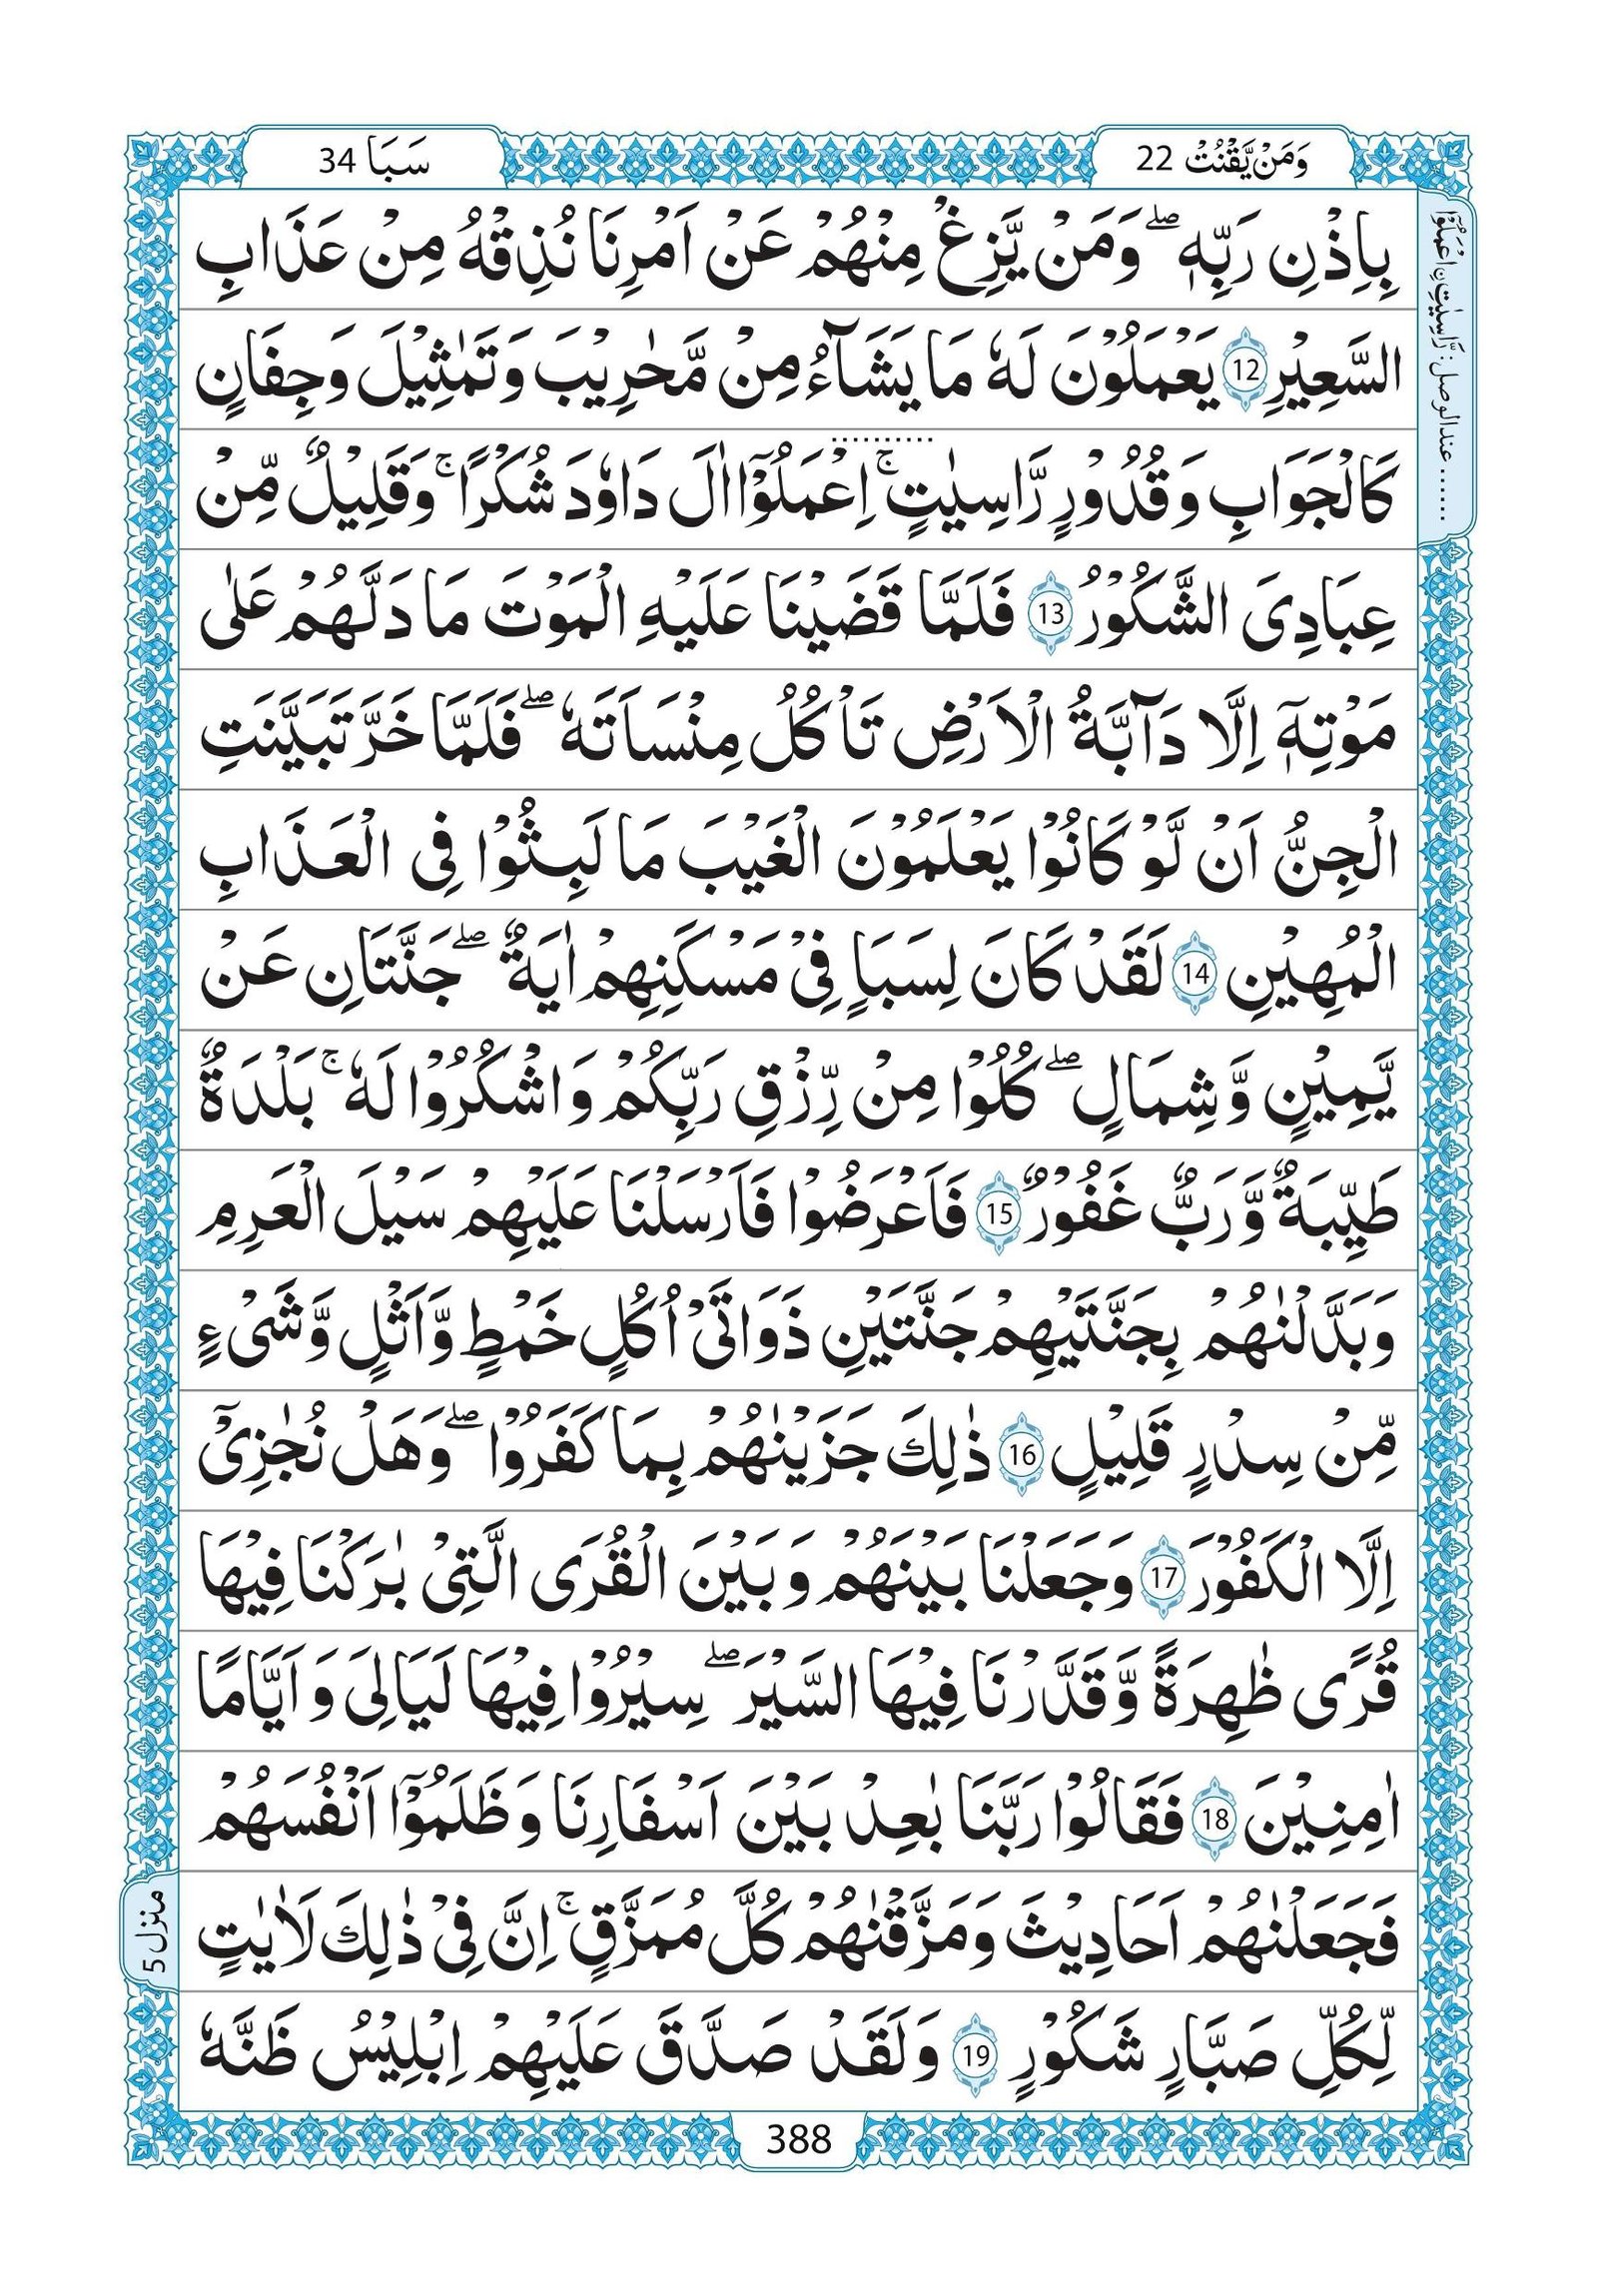 وَمَنْ يَّقْنُتْ 22
سَبَاِ 34
بِاِذْنِ رَبِّهٖ ؕ وَمَنْ يَّزِغْ مِنْهُمْ عَنْ اَمْرِنَا نُذِقْهُ مِنْ عَذَابِ
السَّعِيْرِ 12 يَعْمَلُوْنَ لَهٗ مَا يَشَآءُ مِنْ مَّحٰرِيْبَ وَتَمٰثِيْلَ وَجِفَانٍ
كَالْجَوَابِ وَقُدُوْرٍ رَّاسِيٰتٍ ۚ اِعْمَلُوْٓا اٰلَ دَاوٗدَ شُكْرًا ۚ وَقَلِيْلٌ مِّنْ
عِبَادِىَ الشَّكُوْرُ 13 فَلَمَّا قَضَيْنَا عَلَيْهِ الْمَوْتَ مَا دَلَّهُمْ عَلٰى
مَوْتِهٖٓ اِلَّا دَآبَّةُ الْاَرْضِ تَاْكُلُ مِنْسَاَتَهٗ ۖ فَلَمَّا خَرَّ تَبَيَّنَتِ
الْجِنُّ اَنْ لَّوْ كَانُوْا يَعْلَمُوْنَ الْغَيْبَ مَا لَبِثُوْا فِى الْعَذَابِ
الْمُهِيْنِ 14 لَقَدْ كَانَ لِسَبَاٍ فِىْ مَسْكَنِهِمْ اٰيَةٌ ۖ جَنَّتَانِ عَنْ
يَّمِيْنٍ وَّشِمَالٍ ۖ كُلُوْا مِنْ رِّزْقِ رَبِّكُمْ وَاشْكُرُوْا لَهٗ ۚ بَلْدَةٌ
طَيِّبَةٌ وَّرَبٌّ غَفُوْرٌ 15 فَاَعْرَضُوْا فَاَرْسَلْنَا عَلَيْهِمْ سَيْلَ الْعَرِمِ
وَبَدَّلْنٰهُمْ بِجَنَّتَيْهِمْ جَنَّتَيْنِ ذَوَاتَىْ اُكُلٍ خَمْطٍ وَّاَثْلٍ وَّشَىْءٍ
مِّنْ سِدْرٍ قَلِيْلٍ 16 ذٰلِكَ جَزَيْنٰهُمْ بِمَا كَفَرُوْا ۖ وَهَلْ نُجٰزِىْٓ
اِلَّا الْكَفُوْرَ 17 وَجَعَلْنَا بَيْنَهُمْ وَبَيْنَ الْقُرَى الَّتِىْ بٰرَكْنَا فِيْهَا
قُرًى ظٰهِرَةً وَّقَدَّرْنَا فِيْهَا السَّيْرَ ۖ سِيْرُوْا فِيْهَا لَيَالِىَ وَاَيَّامًا
اٰمِنِيْنَ 18 فَقَالُوْا رَبَّنَا بٰعِدْ بَيْنَ اَسْفَارِنَا وَظَلَمُوْٓا اَنْفُسَهُمْ
فَجَعَلْنٰهُمْ اَحَادِيْثَ وَمَزَّقْنٰهُمْ كُلَّ مُمَزَّقٍ ۚ اِنَّ فِىْ ذٰلِكَ لَاٰيٰتٍ
لِّكُلِّ صَبَّارٍ شَكُوْرٍ 19 وَلَقَدْ صَدَّقَ عَلَيْهِمْ اِبْلِيْسُ ظَنَّهٗ
...... عند الوصل: رَّاسِيٰتِ نِ اعْمَلُوْٓا
منزل 5
388